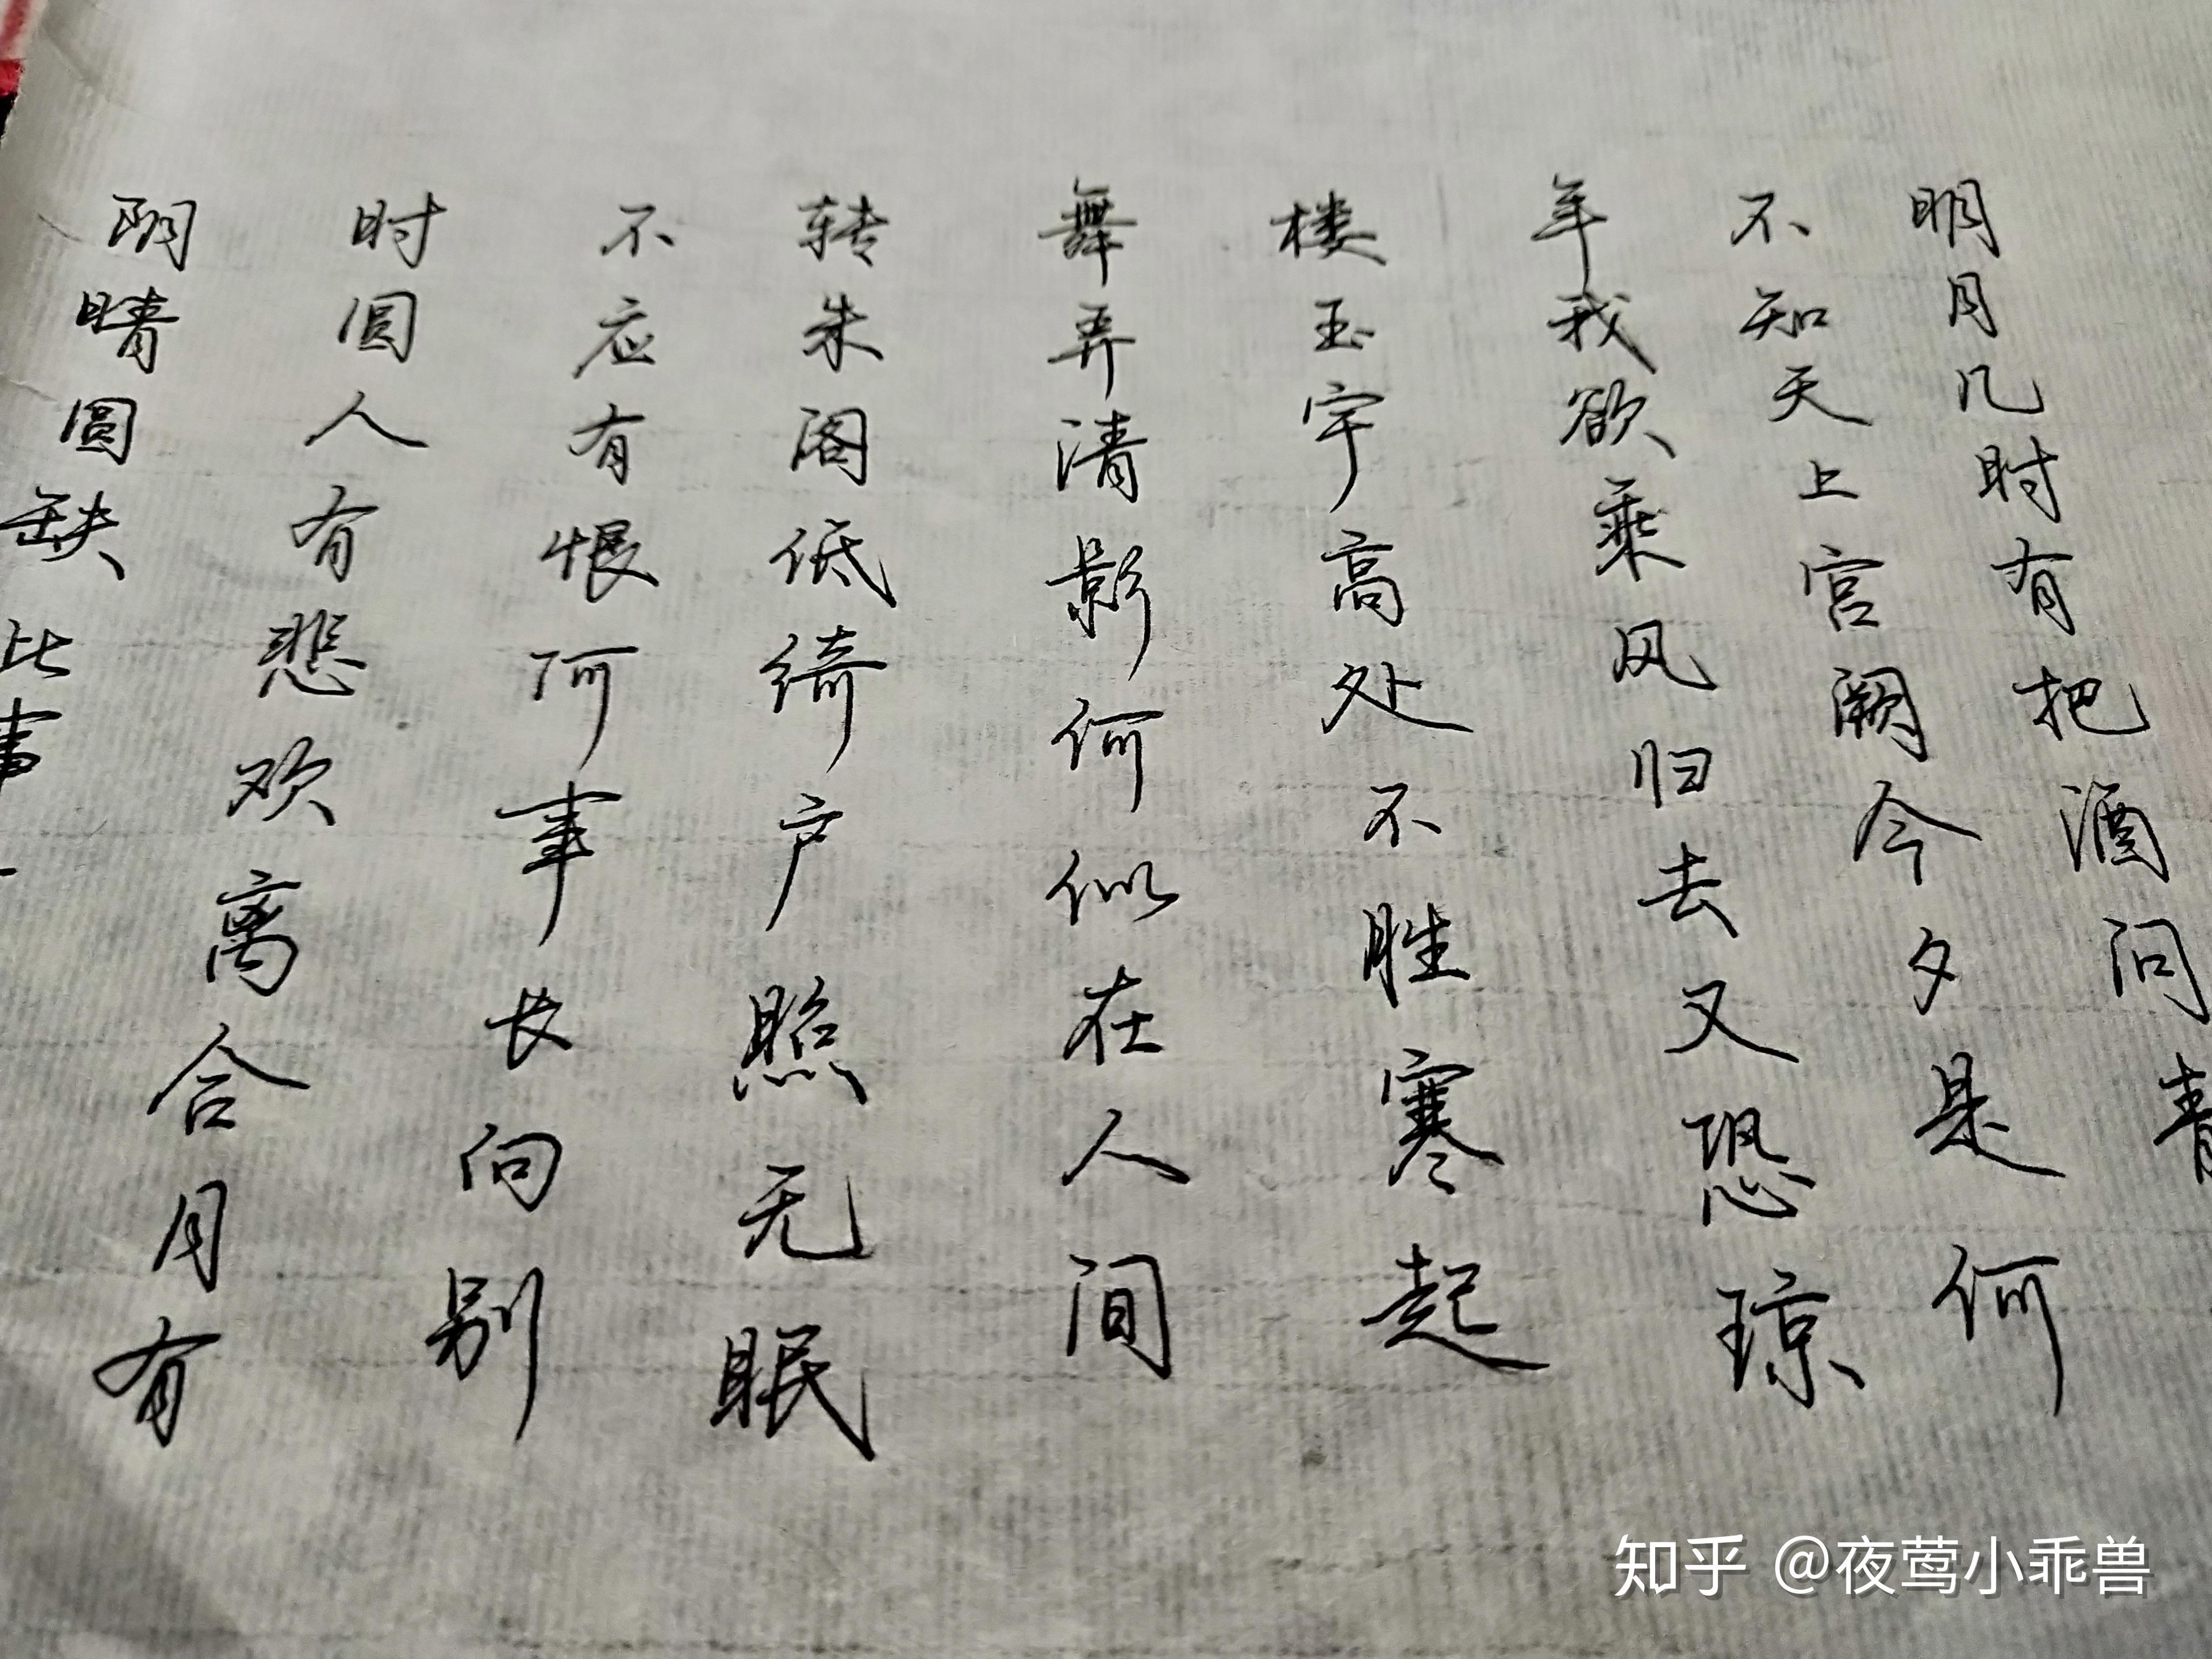 明月几时有把酒问青
不知天上宫阙今夕是何
年我欲乘风归去又恐琼
楼玉宇高处不胜寒起
舞弄清影何似在人间
转朱阁低绮户照无眠
不应有恨何事长向别
时圆人有悲欢离合月有
阴晴圆缺此事
知乎 @夜莺小乖兽